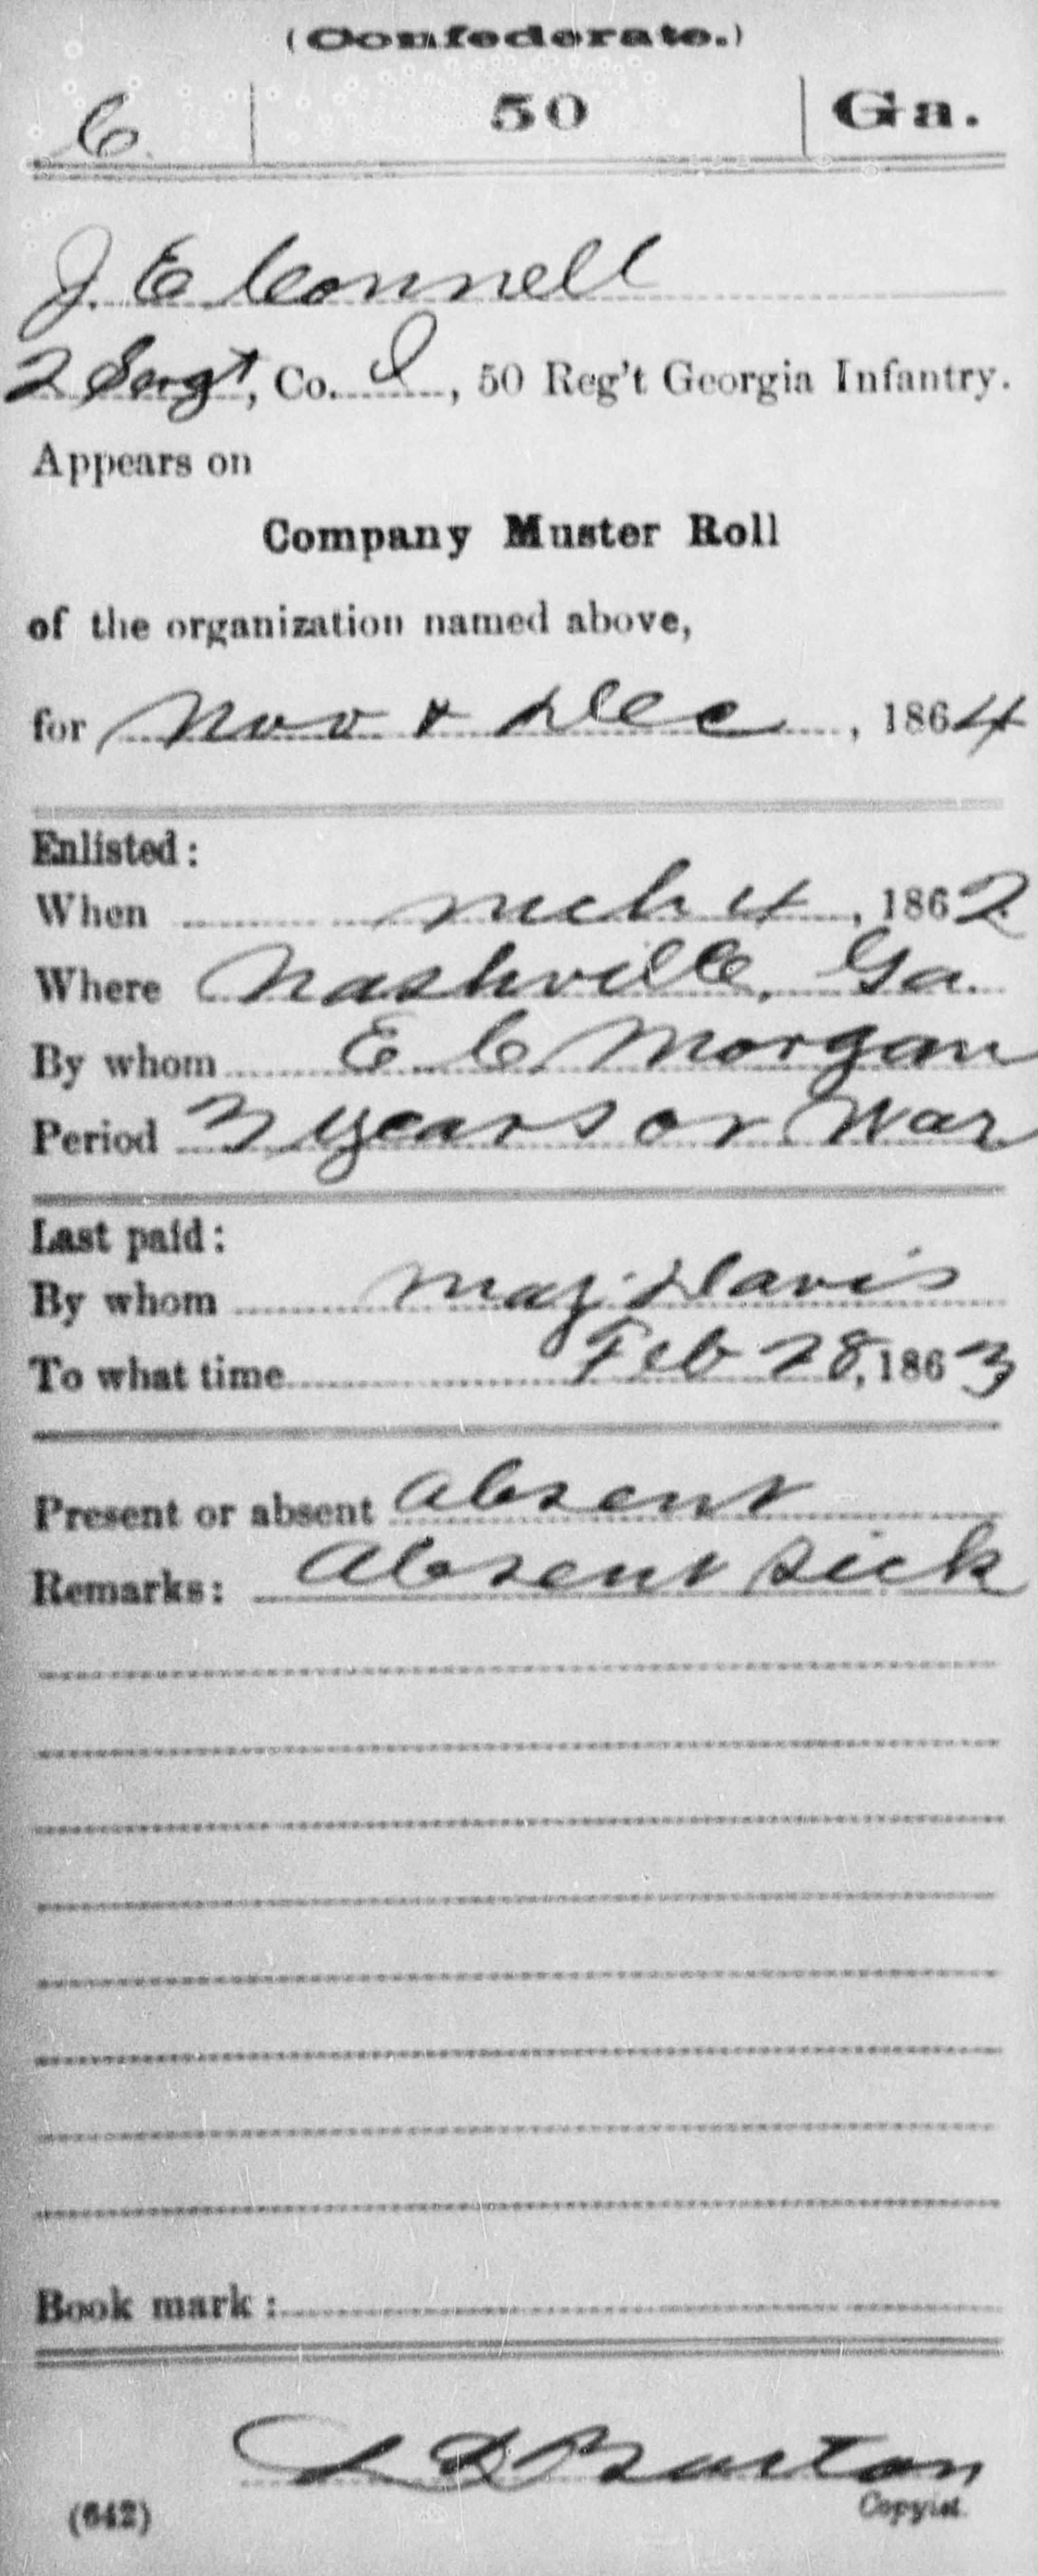 (Confederate.)
C 50 Ga.
J. E Connell
2 Sergt, Co. I, 50 Reg't Georgia Infantry.
Appears on
Company Muster Roll
of the organization named above,
for Nov & Dec, 1864
Enlisted:
When Mch 4, 1862
Where Nashville, Ga.
By whom E C Morgan
Period 3 years or War
Last paid:
By whom Maj. Davis
To what time Feb 28, 1863
Present or absent Absent
Remarks: Absent sick
Book mark:
Burton
(642) Copyist.